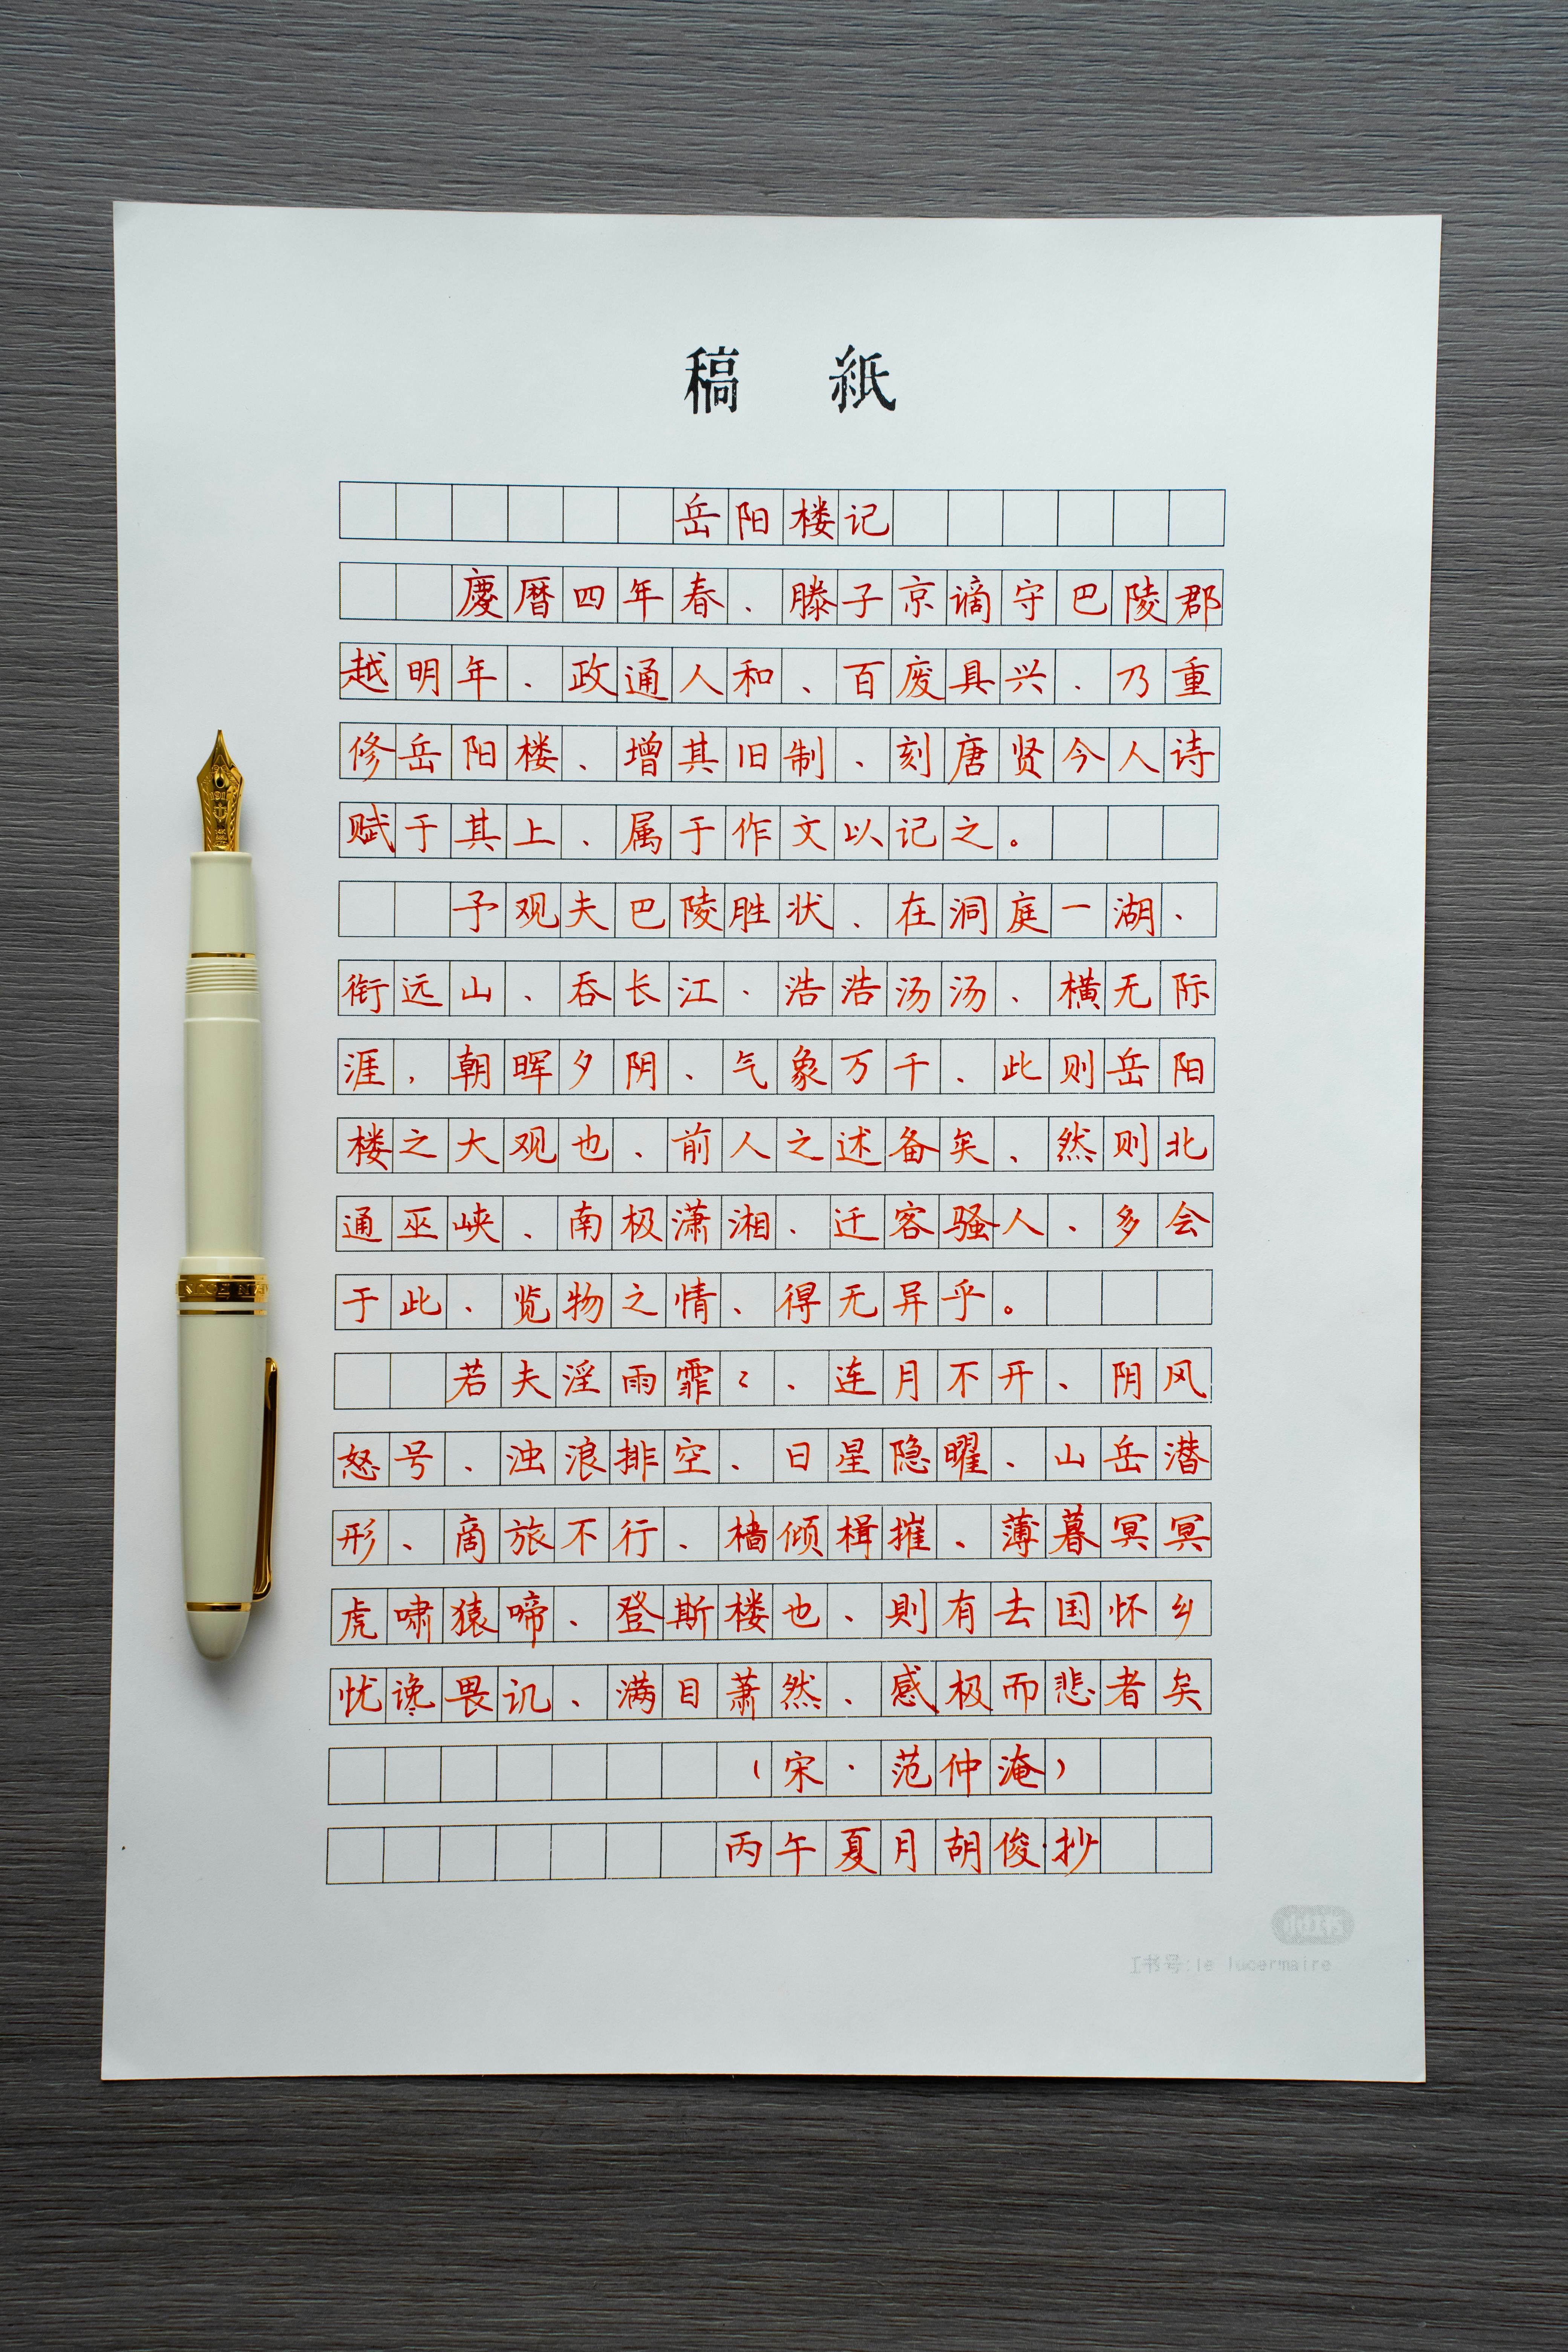 稿紙
岳阳楼记
慶暦四年春、滕子京谪守巴陵郡
越明年、政通人和、百废具兴、乃重
修岳阳楼、增其旧制、刻唐贤今人诗
赋于其上、属于作文以记之。
予观夫巴陵胜状、在洞庭一湖、
衔远山、吞长江、浩浩汤汤、横无际
涯，朝晖夕阴、气象万千、此则岳阳
楼之大观也、前人之述备矣、然则北
通巫峡、南极潇湘、迁客骚人、多会
于此、览物之情、得无异乎。
若夫淫雨霏〻、连月不开、阴风
怒号、浊浪排空、日星隐曜、山岳潜
形、商旅不行、樯倾楫摧、薄暮冥冥
虎啸猿啼、登斯楼也、則有去国怀乡
忧谗畏讥、满目萧然、感极而悲者矣
（宋·范仲淹）
丙午夏月胡俊·抄
1917
中
14K